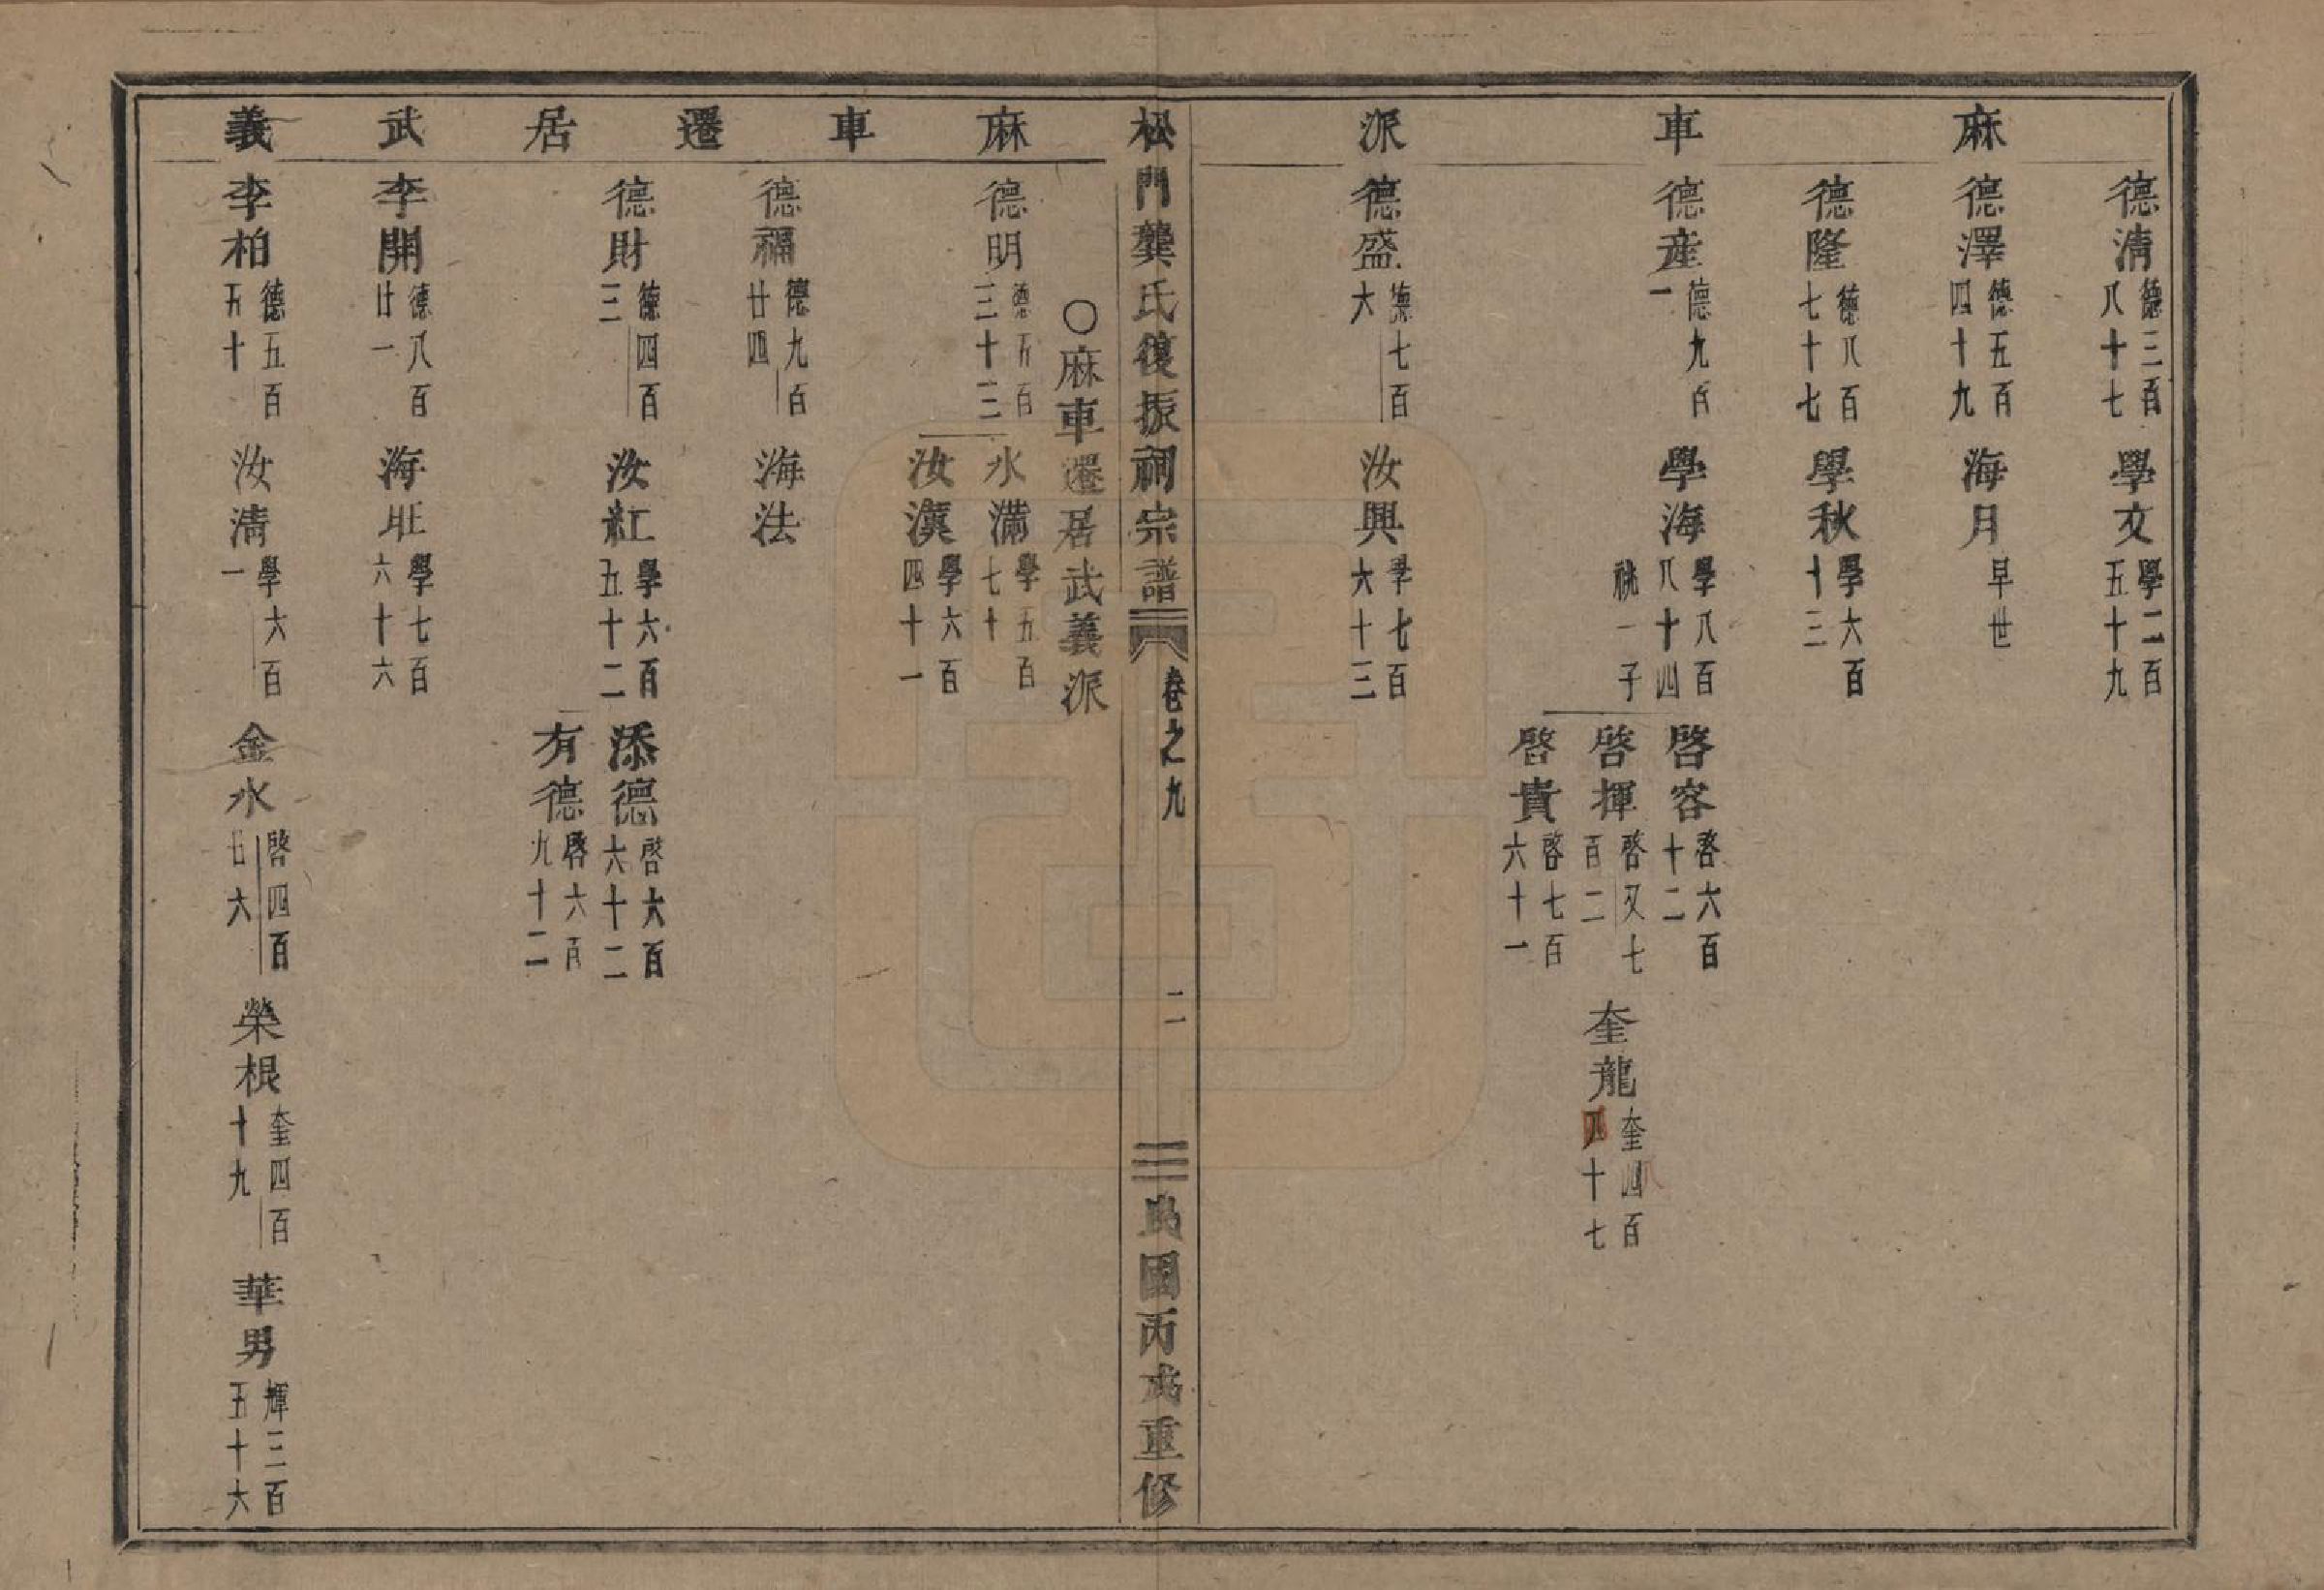 麻車派
德清 德三百八十七 學文 學二百五十九
德澤 德五百四十九 海月 早世
德隆 德八百七十七 學秋 學六百十三
德産 德九百一 學海 學八百八十四 祧一子 啓容 啓六百十二
啓揮 啓又七百二 奎龍 奎四百四十七
啓貴 啓七百六十一
德盛 德七百六 汝興 學七百六十三
松門龔氏復振祠宗譜 卷之九 二 民國丙戌重修
麻車遷居武義
〇麻車遷居武義派
德明 德五百三十三 水滿 學五百七十
汝漢 學六百四十一
德福 德九百廿四 海法
德財 德四百三 汝紅 學六百五十二 添德 啓六百六十二
有德 啓六百九十二
李開 德八百廿一 海旺 學七百六十六
李柏 德五百五十 汝清 學六百一 金水 啓四百七六 榮根 奎四百十九 華男 輝三百五十六